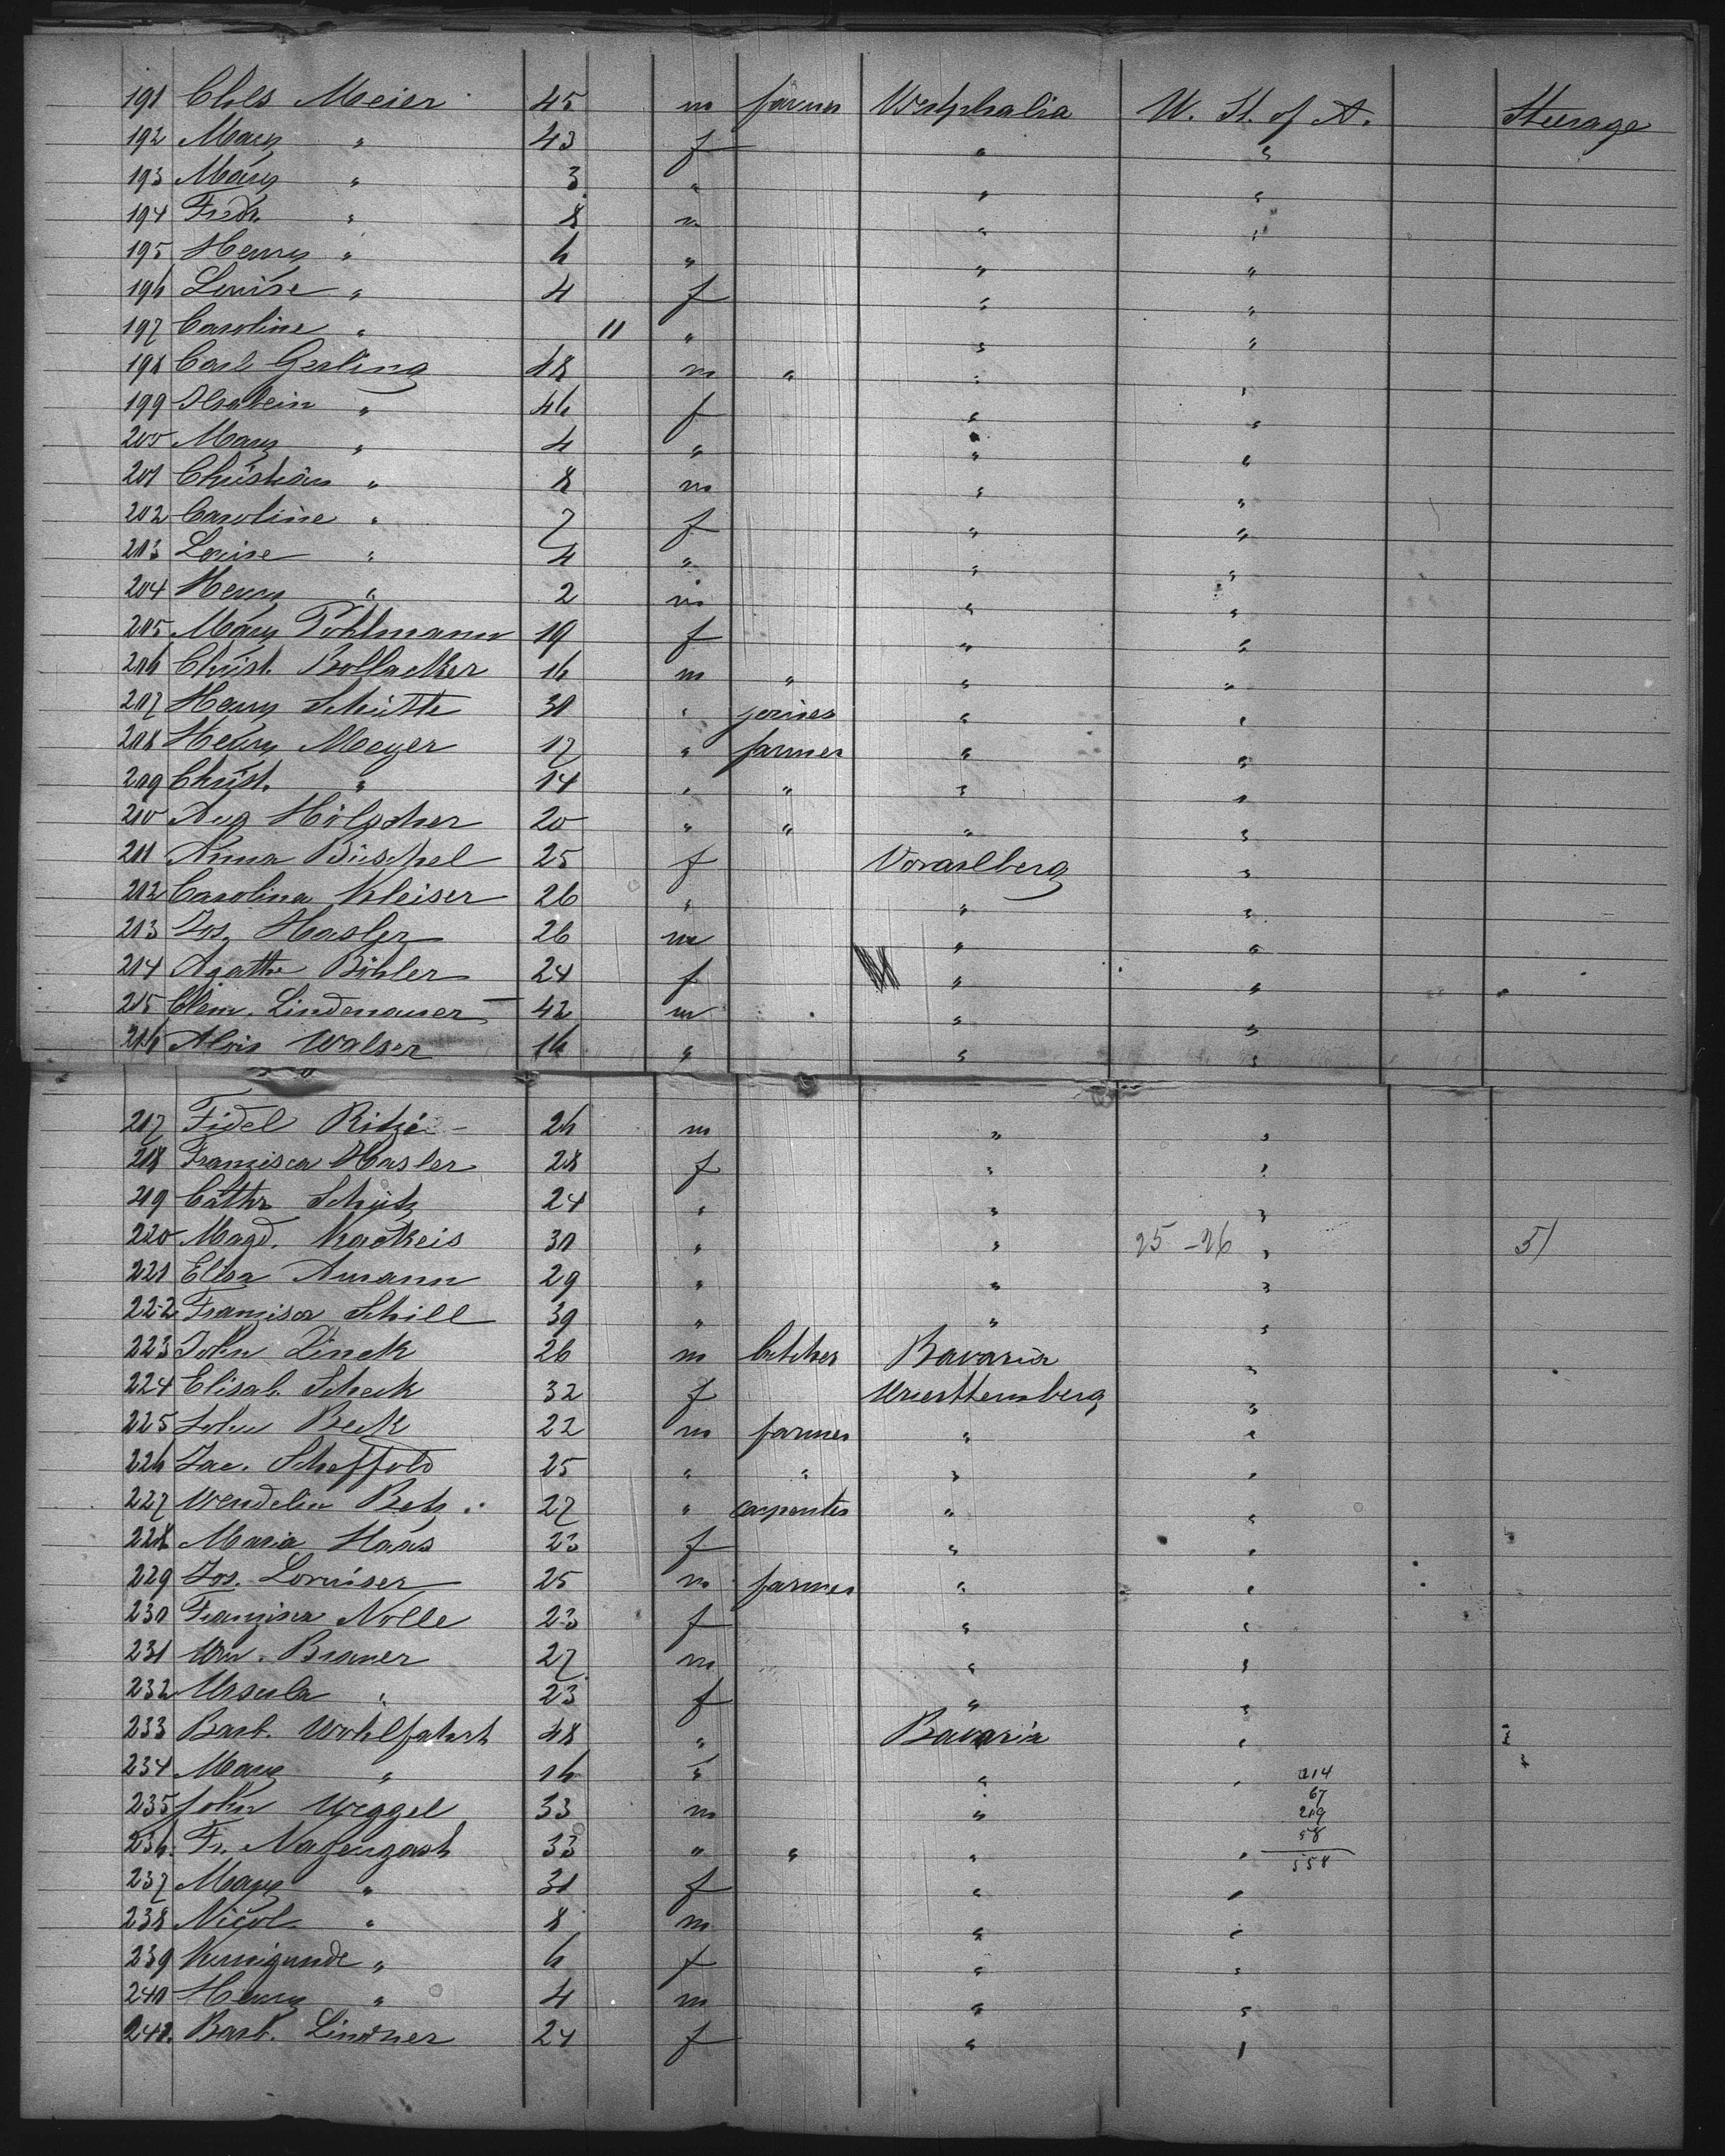 191 Chls Meier 45 m farmer Westphalia U. St. of A. Steerage
192 Mary " 43 f " "
193 Mary " 3 " " "
194 Fredr. " 8 m " "
195 Henry " 6 " " "
196 Louise " 4 f " "
197 Caroline " 11 " " "
198 Carl Gerling 48 m " " "
199 Ilsabein " 46 f " "
200 Mary " 4 " " "
201 Christian " 8 m " "
202 Caroline " 7 f " "
203 Louise " 4 " " "
204 Henry " 2 m " "
205 Mary Pohlmann 19 f " "
206 Christ. Bollacker 16 m " " "
207 Henry Schütte 30 " joiner " "
208 Henry Meyer 17 " farmer " "
209 Christ. " 14 " " " "
210 Aug Hölscher 20 " " " "
211 Anna Büschel 25 f Vorarlberg "
212 Carolina Kleiser 26 " " "
213 Jos. Hasler 26 m " "
214 Agathe Böhler 24 f " "
215 Clem. Lindenauer 42 m " "
216 Alois Walser 16 " " "
217 Fidel 26 m " "
218 Franzisca Hasler 28 f " "
219 Cathr. Schütz 24 " " "
220 Magd. 30 " " 25-26 " 5)
221 Elisa Amann 29 " " "
222 Franzisca Schill 39 " " "
223 John Linck 26 m butcher Bavaria "
224 Elisab. Scheck 32 f Wuerttemberg "
225 John Beck 22 m farmer " "
226 Jac. Scheffold 25 " " " "
227 Wendelin Betz 27 " carpenter " "
228 Maria Haas 23 f " "
229 Jos. Loruiser 25 m farmer " "
230 Franzisca Nolle 23 f " "
231 Wm. Brauner 27 m " "
232 Ursula " 23 f " "
233 Barb. Wohlfahrt 48 " Bavaria "
234 Mary " 16 " " " 214
235 John Weggel 33 m " 67
219
236. Fr. Nagengast 33 " " " " 58
558
237 Mary " 30 f " "
238 Nicol " 8 m " "
239 Kunigunde " 6 f " "
240 Henry " 4 m " "
241. Barb. Lindner 24 f " "